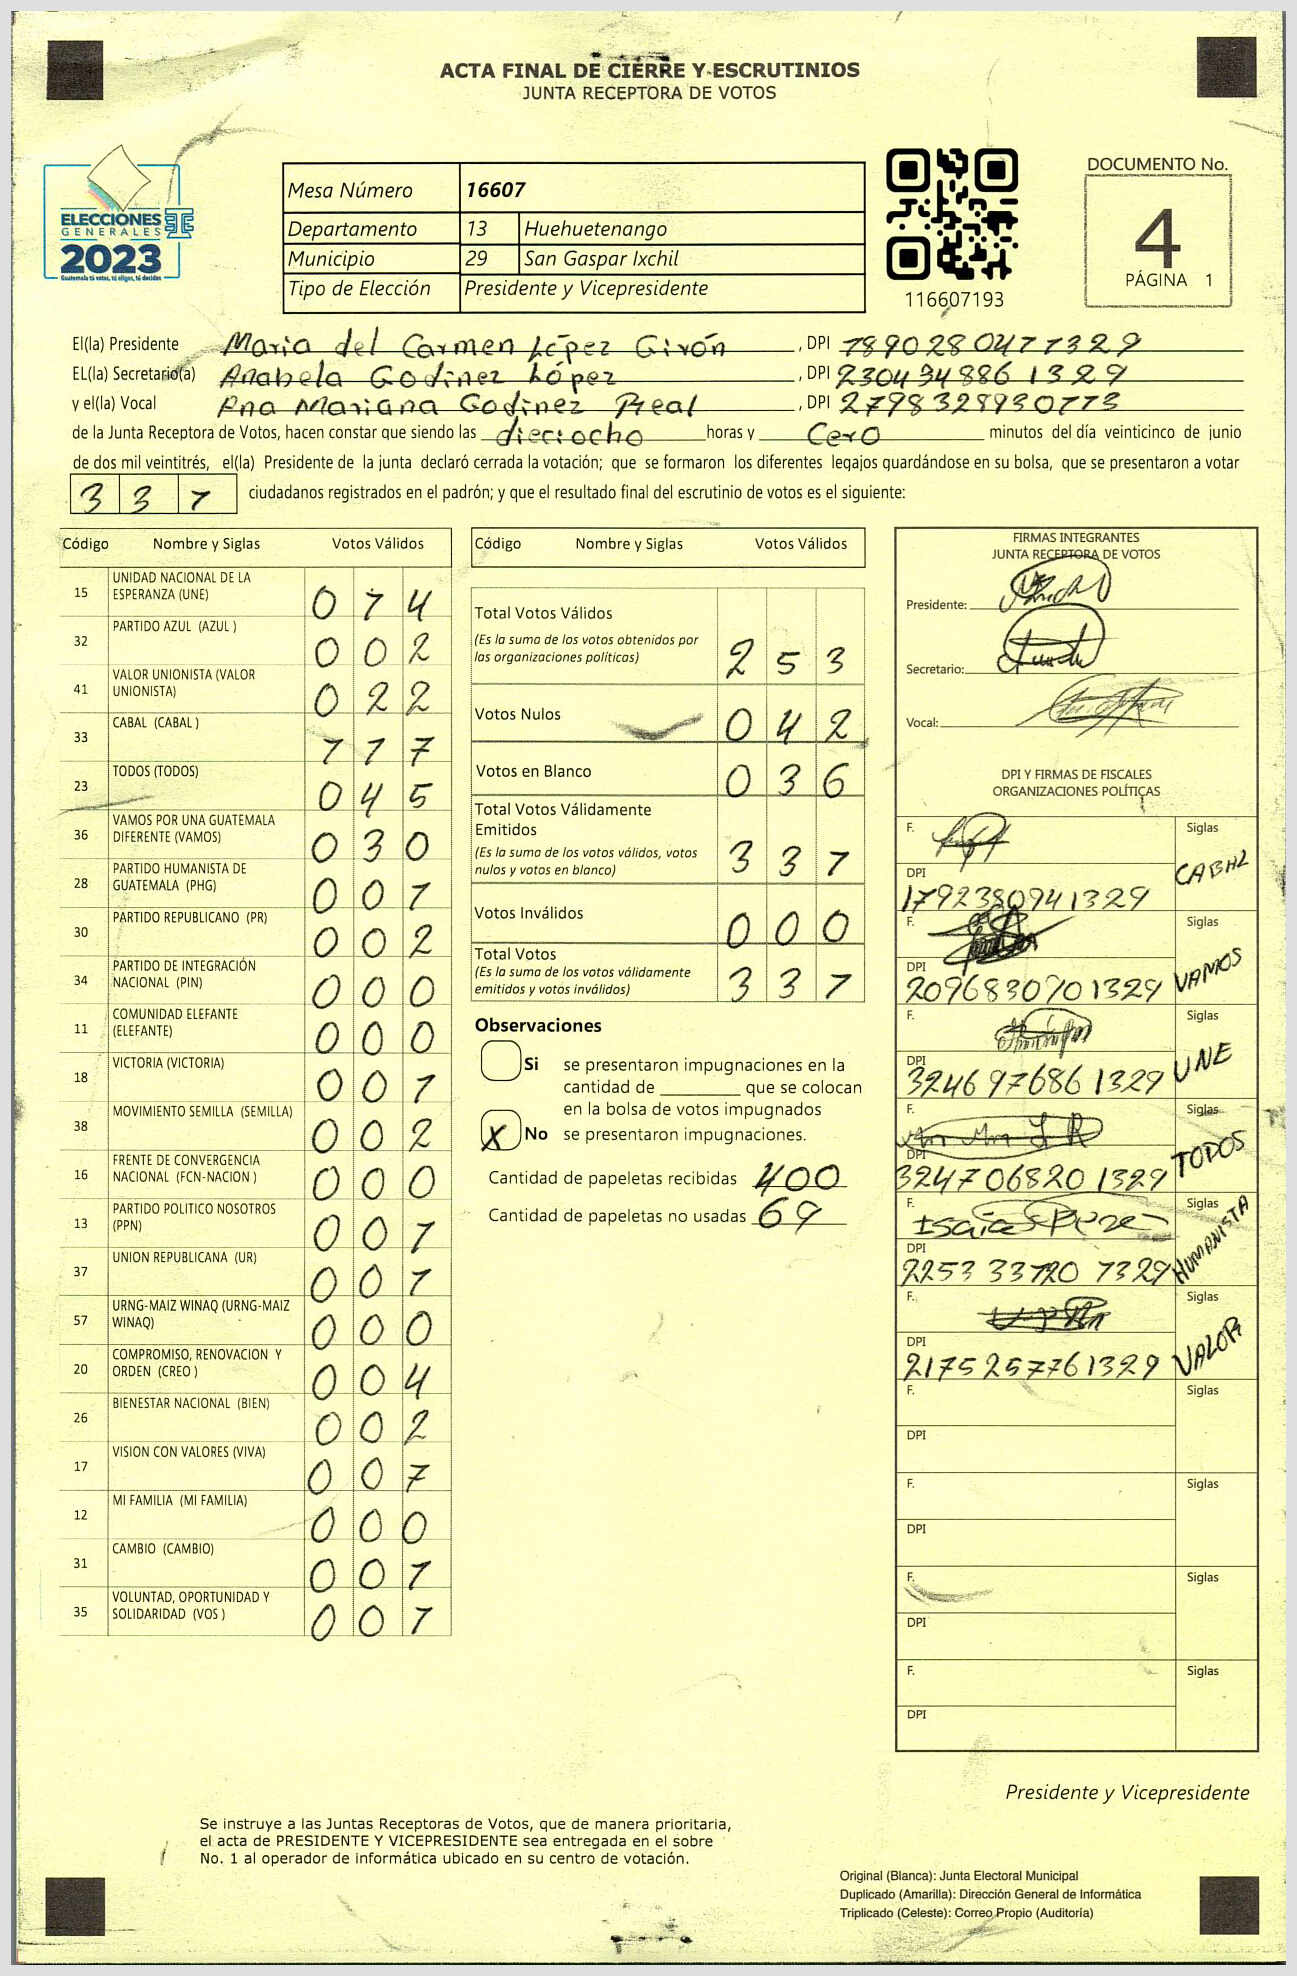 ACTA FINAL DE CIERRE Y ESCRUTINIOS
JUNTA RECEPTORA DE VOTOS
ELECCIONES
GENERALES
2023
Guatemala tú votas, tú eliges, tú decides
Mesa Número 16607
Departamento 13 Huehuetenango
Municipio 29 San Gaspar Ixchil
Tipo de Elección Presidente y Vicepresidente
116607193
DOCUMENTO No.
4
PÁGINA 1
El(la) Presidente Maria del Carmen López Girón , DPI 1890280471329
EL(la) Secretario(a) Anabela Godinez López , DPI 2304348861329
y el(la) Vocal Ana Mariana Godinez Real , DPI 2798328930713
de la Junta Receptora de Votos, hacen constar que siendo las dieciocho horas y Cero minutos del día veinticinco de junio
de dos mil veintitrés, el(la) Presidente de la junta declaró cerrada la votación; que se formaron los diferentes legajos guardándose en su bolsa, que se presentaron a votar
331 ciudadanos registrados en el padrón; y que el resultado final del escrutinio de votos es el siguiente:
Código Nombre y Siglas Votos Válidos
15 UNIDAD NACIONAL DE LA ESPERANZA (UNE) 014
32 PARTIDO AZUL (AZUL ) 002
41 VALOR UNIONISTA (VALOR UNIONISTA) 022
33 CABAL (CABAL ) 117
23 TODOS (TODOS) 045
36 VAMOS POR UNA GUATEMALA DIFERENTE (VAMOS) 030
28 PARTIDO HUMANISTA DE GUATEMALA (PHG) 001
30 PARTIDO REPUBLICANO (PR) 002
34 PARTIDO DE INTEGRACIÓN NACIONAL (PIN) 000
11 COMUNIDAD ELEFANTE (ELEFANTE) 000
18 VICTORIA (VICTORIA) 001
38 MOVIMIENTO SEMILLA (SEMILLA) 002
16 FRENTE DE CONVERGENCIA NACIONAL (FCN-NACION ) 000
13 PARTIDO POLITICO NOSOTROS (PPN) 001
37 UNION REPUBLICANA (UR) 001
57 URNG-MAIZ WINAQ (URNG-MAIZ WINAQ) 000
20 COMPROMISO, RENOVACION Y ORDEN (CREO ) 004
26 BIENESTAR NACIONAL (BIEN) 002
17 VISION CON VALORES (VIVA) 007
12 MI FAMILIA (MI FAMILIA) 000
31 CAMBIO (CAMBIO) 001
35 VOLUNTAD, OPORTUNIDAD Y SOLIDARIDAD (VOS ) 001
Código Nombre y Siglas Votos Válidos
Total Votos Válidos
(Es la suma de los votos obtenidos por las organizaciones políticas) 253
Votos Nulos 042
Votos en Blanco 036
Total Votos Válidamente Emitidos
(Es la suma de los votos válidos, votos nulos y votos en blanco) 331
Votos Inválidos 000
Total Votos
(Es la suma de los votos válidamente emitidos y votos inválidos) 331
Observaciones
Si se presentaron impugnaciones en la
cantidad de ________ que se colocan
en la bolsa de votos impugnados
X No se presentaron impugnaciones.
Cantidad de papeletas recibidas 400
Cantidad de papeletas no usadas 69
FIRMAS INTEGRANTES
JUNTA RECEPTORA DE VOTOS
Presidente:
Secretario:
Vocal:
DPI Y FIRMAS DE FISCALES
ORGANIZACIONES POLÍTICAS
F. Siglas CABAL
DPI 1792380941329
F. Siglas VAMOS
DPI 2096830901329
F. Siglas UNE
DPI 3246976861329
F. Siglas TODOS
DPI 3247068201329
F. Siglas HUMANISTA
DPI 2253337201329
F. Siglas VALOR
DPI 2175257761329
F. Siglas
DPI
F. Siglas
DPI
F. Siglas
DPI
F. Siglas
DPI
Presidente y Vicepresidente
Se instruye a las Juntas Receptoras de Votos, que de manera prioritaria,
el acta de PRESIDENTE Y VICEPRESIDENTE sea entregada en el sobre
No. 1 al operador de informática ubicado en su centro de votación.
Original (Blanca): Junta Electoral Municipal
Duplicado (Amarilla): Dirección General de Informática
Triplicado (Celeste): Correo Propio (Auditoría)